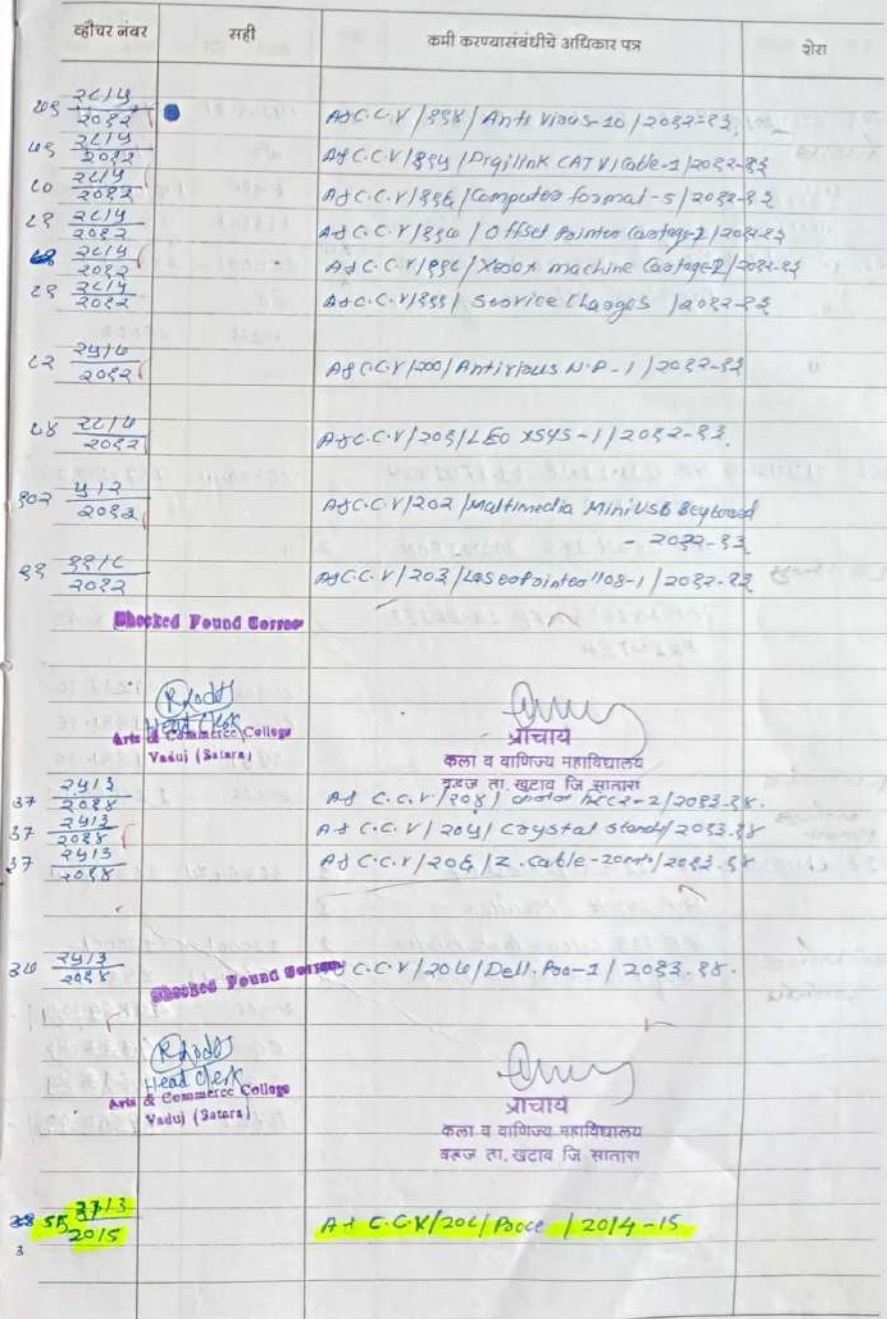 व्हौचर नंबर सही कमी करण्यासंबंधीचे अधिकार पत्र शेरा
७९ २८/५/२०१२ A&C.C.V/१९४/Anti Virus-10/२०१२-१३.
७९ २८/५/२०१२ A&C.C.V/१९५/Digilink CAT V/Cable-1/२०१२-१३
८० २८/५/२०१२ A&C.C.V/१९६/Computer formal-5/२०१२-१३
८१ २८/५/२०१२ A&C.C.V/१९७/Offset Printer Cartage-2/२०१२-१३
२८/५/२०१२ A&C.C.V/१९८/Xerox machine Cartage-2/२०१२-१३
८१ २८/५/२०१२ A&C.C.V/१९९/Service Charges/२०१२-१३
८२ २५/७/२०१२ A&C.C.V/२००/Antivirus N.P-1/२०१२-१३
८४ २८/७/२०१२ A&C.C.V/२०१/LEO XSYS-1/२०१२-१३.
१०२ ५/२/२०१२ A&C.C.V/२०२/Maltimedia Mini USB Beyboard
- २०१२-१३
९१ ११/८/२०१२ A&C.C.V/२०३/LaserPrinter 1108-1/२०१२-१३
Checked Found Correct
Head Clerk
Arts & Commerce College
Vaduj (Satara)
प्राचार्य
कला व वाणिज्य महाविद्यालय
वडूज ता. खटाव जि सातारा
37 २५/३/२०१४ A&C.C.V/२०४/ -2/२०१३.१४.
37 २५/३/२०१४ A&C.C.V/२०५/Crystal Stand/२०१३.१४
37 २५/३/२०१४ A&C.C.V/२०६/Z.Cable-20mt/२०१३.१४
३७ २५/३/२०१४ A&C.C.V/२०७/Dell. Pro-1/२०१३.१४.
Checked Found Correct
Head Clerk
Arts & Commerce College
Vaduj (Satara)
प्राचार्य
कला व वाणिज्य महाविद्यालय
वडूज ता. खटाव जि सातारा
55 37/3/2015 A&C.C.V/२०८/ /2014-15
3